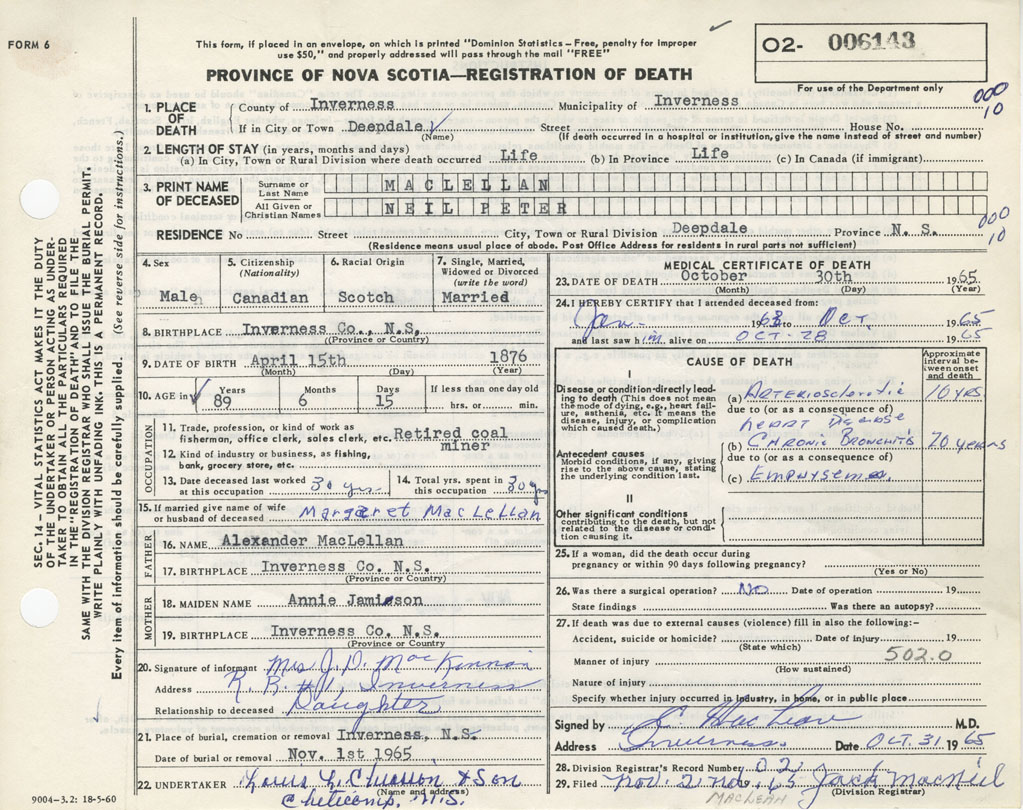 FORM 6
This form, if placed in an envelope, on which is printed "Dominion Statistics – Free, penalty for improper
use $50," and properly addressed will pass through the mail "FREE"
O2- 006143
For use of the Department only
PROVINCE OF NOVA SCOTIA—REGISTRATION OF DEATH
000
10
1. PLACE OF DEATH
County of Inverness Municipality of Inverness
If in City or Town Deepdale Street House No.
(Name) (If death occurred in a hospital or institution, give the name instead of street and number)
2. LENGTH OF STAY (in years, months and days)
(a) In City, Town or Rural Division where death occurred Life (b) In Province Life (c) In Canada (if immigrant)
3. PRINT NAME OF DECEASED
Surname or Last Name MACLELLAN
All Given or Christian Names NEIL PETER
000
10
RESIDENCE No Street City, Town or Rural Division Deepdale Province N. S.
(Residence means usual place of abode. Post Office Address for residents in rural parts not sufficient)
4. Sex
Male
5. Citizenship (Nationality)
Canadian
6. Racial Origin
Scotch
7. Single, Married, Widowed or Divorced (write the word)
Married
8. BIRTHPLACE Inverness Co., N.S.
(Province or Country)
9. DATE OF BIRTH April 15th 1876
(Month) (Day) (Year)
10. AGE in Years 89 Months 6 Days 15 If less than one day old hrs. or min.
OCCUPATION
11. Trade, profession, or kind of work as
fisherman, office clerk, sales clerk, etc. Retired coal
miner
12. Kind of industry or business, as fishing,
bank, grocery store, etc.
13. Date deceased last worked at this occupation 30 yrs.
14. Total yrs. spent in this occupation 30 yrs
15. If married give name of wife or husband of deceased Margaret MacLellan
FATHER
16. NAME Alexander MacLellan
17. BIRTHPLACE Inverness Co. N.S.
(Province or Country)
MOTHER
18. MAIDEN NAME Annie Jamieson
19. BIRTHPLACE Inverness Co. N.S.
(Province or Country
20. Signature of informant Mrs J. D. MacKinnon
Address R. R. #1, Inverness
Relationship to deceased Daughter
21. Place of burial, cremation or removal Inverness, N.S.
Date of burial or removal Nov. 1st 1965
22. UNDERTAKER & Son
(Name and address)
Cheticamp, N.S.
9004-3.2: 18-5-60
MEDICAL CERTIFICATE OF DEATH
23. DATE OF DEATH October 30th 1965
(Month) (Day) (Year)
24. I HEREBY CERTIFY that I attended deceased from:
Jan- 1963 to Oct. 1965
and last saw him alive on OCT-28 1965
CAUSE OF DEATH
Approximate interval between onset and death
I
Disease or condition directly leading to death (This does not mean the mode of dying, e.g., heart failure, asthenia, etc. It means the disease, injury, or complication which caused death.)
(a) Arteriosclerotic 10 yrs
due to (or as a consequence of)
heart
(b) Chronic Bronchitis 20 years
due to (or as a consequence of)
(c) Emphysema
Antecedent causes
Morbid conditions, if any, giving rise to the above cause, stating the underlying condition last.
II
Other significant conditions
contributing to the death, but not related to the disease or condition causing it.
25. If a woman, did the death occur during
pregnancy or within 90 days following pregnancy?
(Yes or No)
26. Was there a surgical operation? No Date of operation 19
State findings Was there an autopsy?
27. If death was due to external causes (violence) fill in also the following:–
Accident, suicide or homicide? Date of injury 19
(State which)
Manner of injury 502.0
(How sustained)
Nature of injury
Specify whether injury occurred in industry, in home, or in public place
Signed by MacLean M.D.
Address Inverness Date OCT. 31 1965
28. Division Registrar's Record Number 02
29. Filed Nov. 2nd, 65 Jack MacNeil
(Division Registrar)
MACLEAN
SEC. 14 – VITAL STATISTICS ACT MAKES IT THE DUTY
OF THE UNDERTAKER OR PERSON ACTING AS UNDER-
TAKER TO OBTAIN ALL THE PARTICULARS REQUIRED
IN THE "REGISTRATION OF DEATH" AND TO FILE THE
SAME WITH THE DIVISION REGISTRAR WHO SHALL ISSUE THE BURIAL PERMIT.
WRITE PLAINLY WITH UNFADING INK. THIS IS A PERMANENT RECORD.
Every item of information should be carefully supplied. (See reverse side for instructions.)